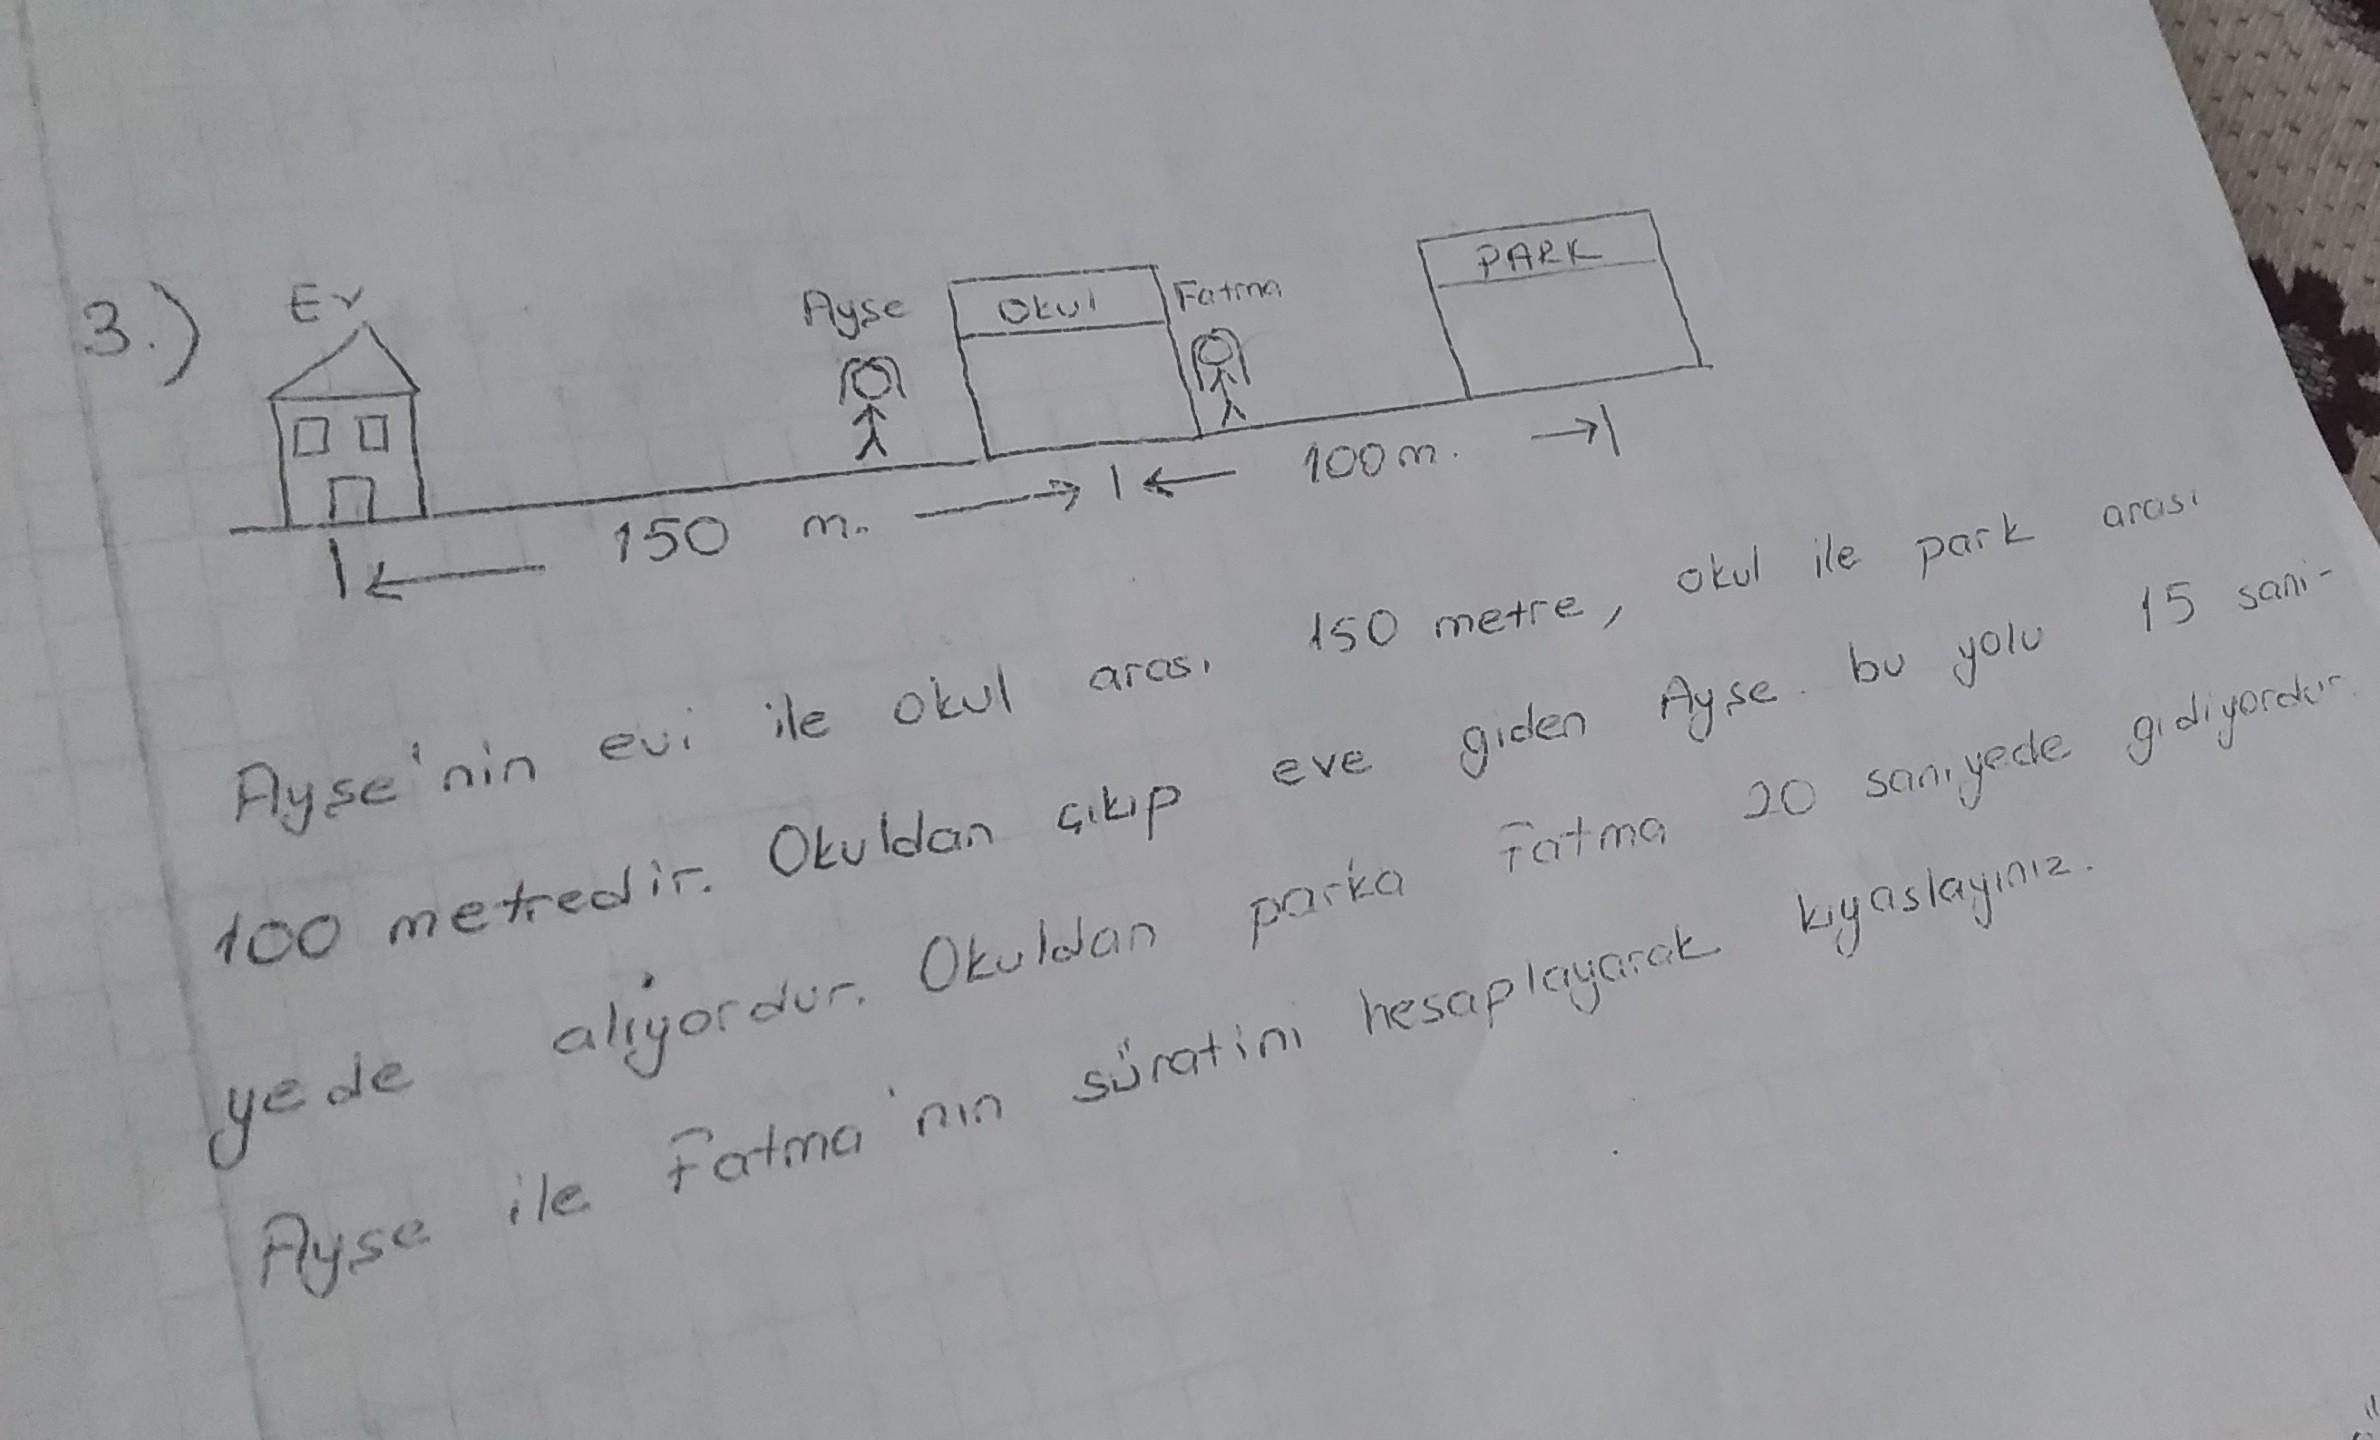 3.) Ev Ayşe Okul Fatma PARK
150 m. 100 m.
Ayşe'nin evi ile okul arası 150 metre, okul ile park arası
100 metredir. Okuldan çıkıp eve giden Ayşe bu yolu 15 sani-
yede alıyordur. Okuldan parka Fatma 20 saniyede gidiyordur.
Ayşe ile Fatma'nın süratini hesaplayarak kıyaslayınız.